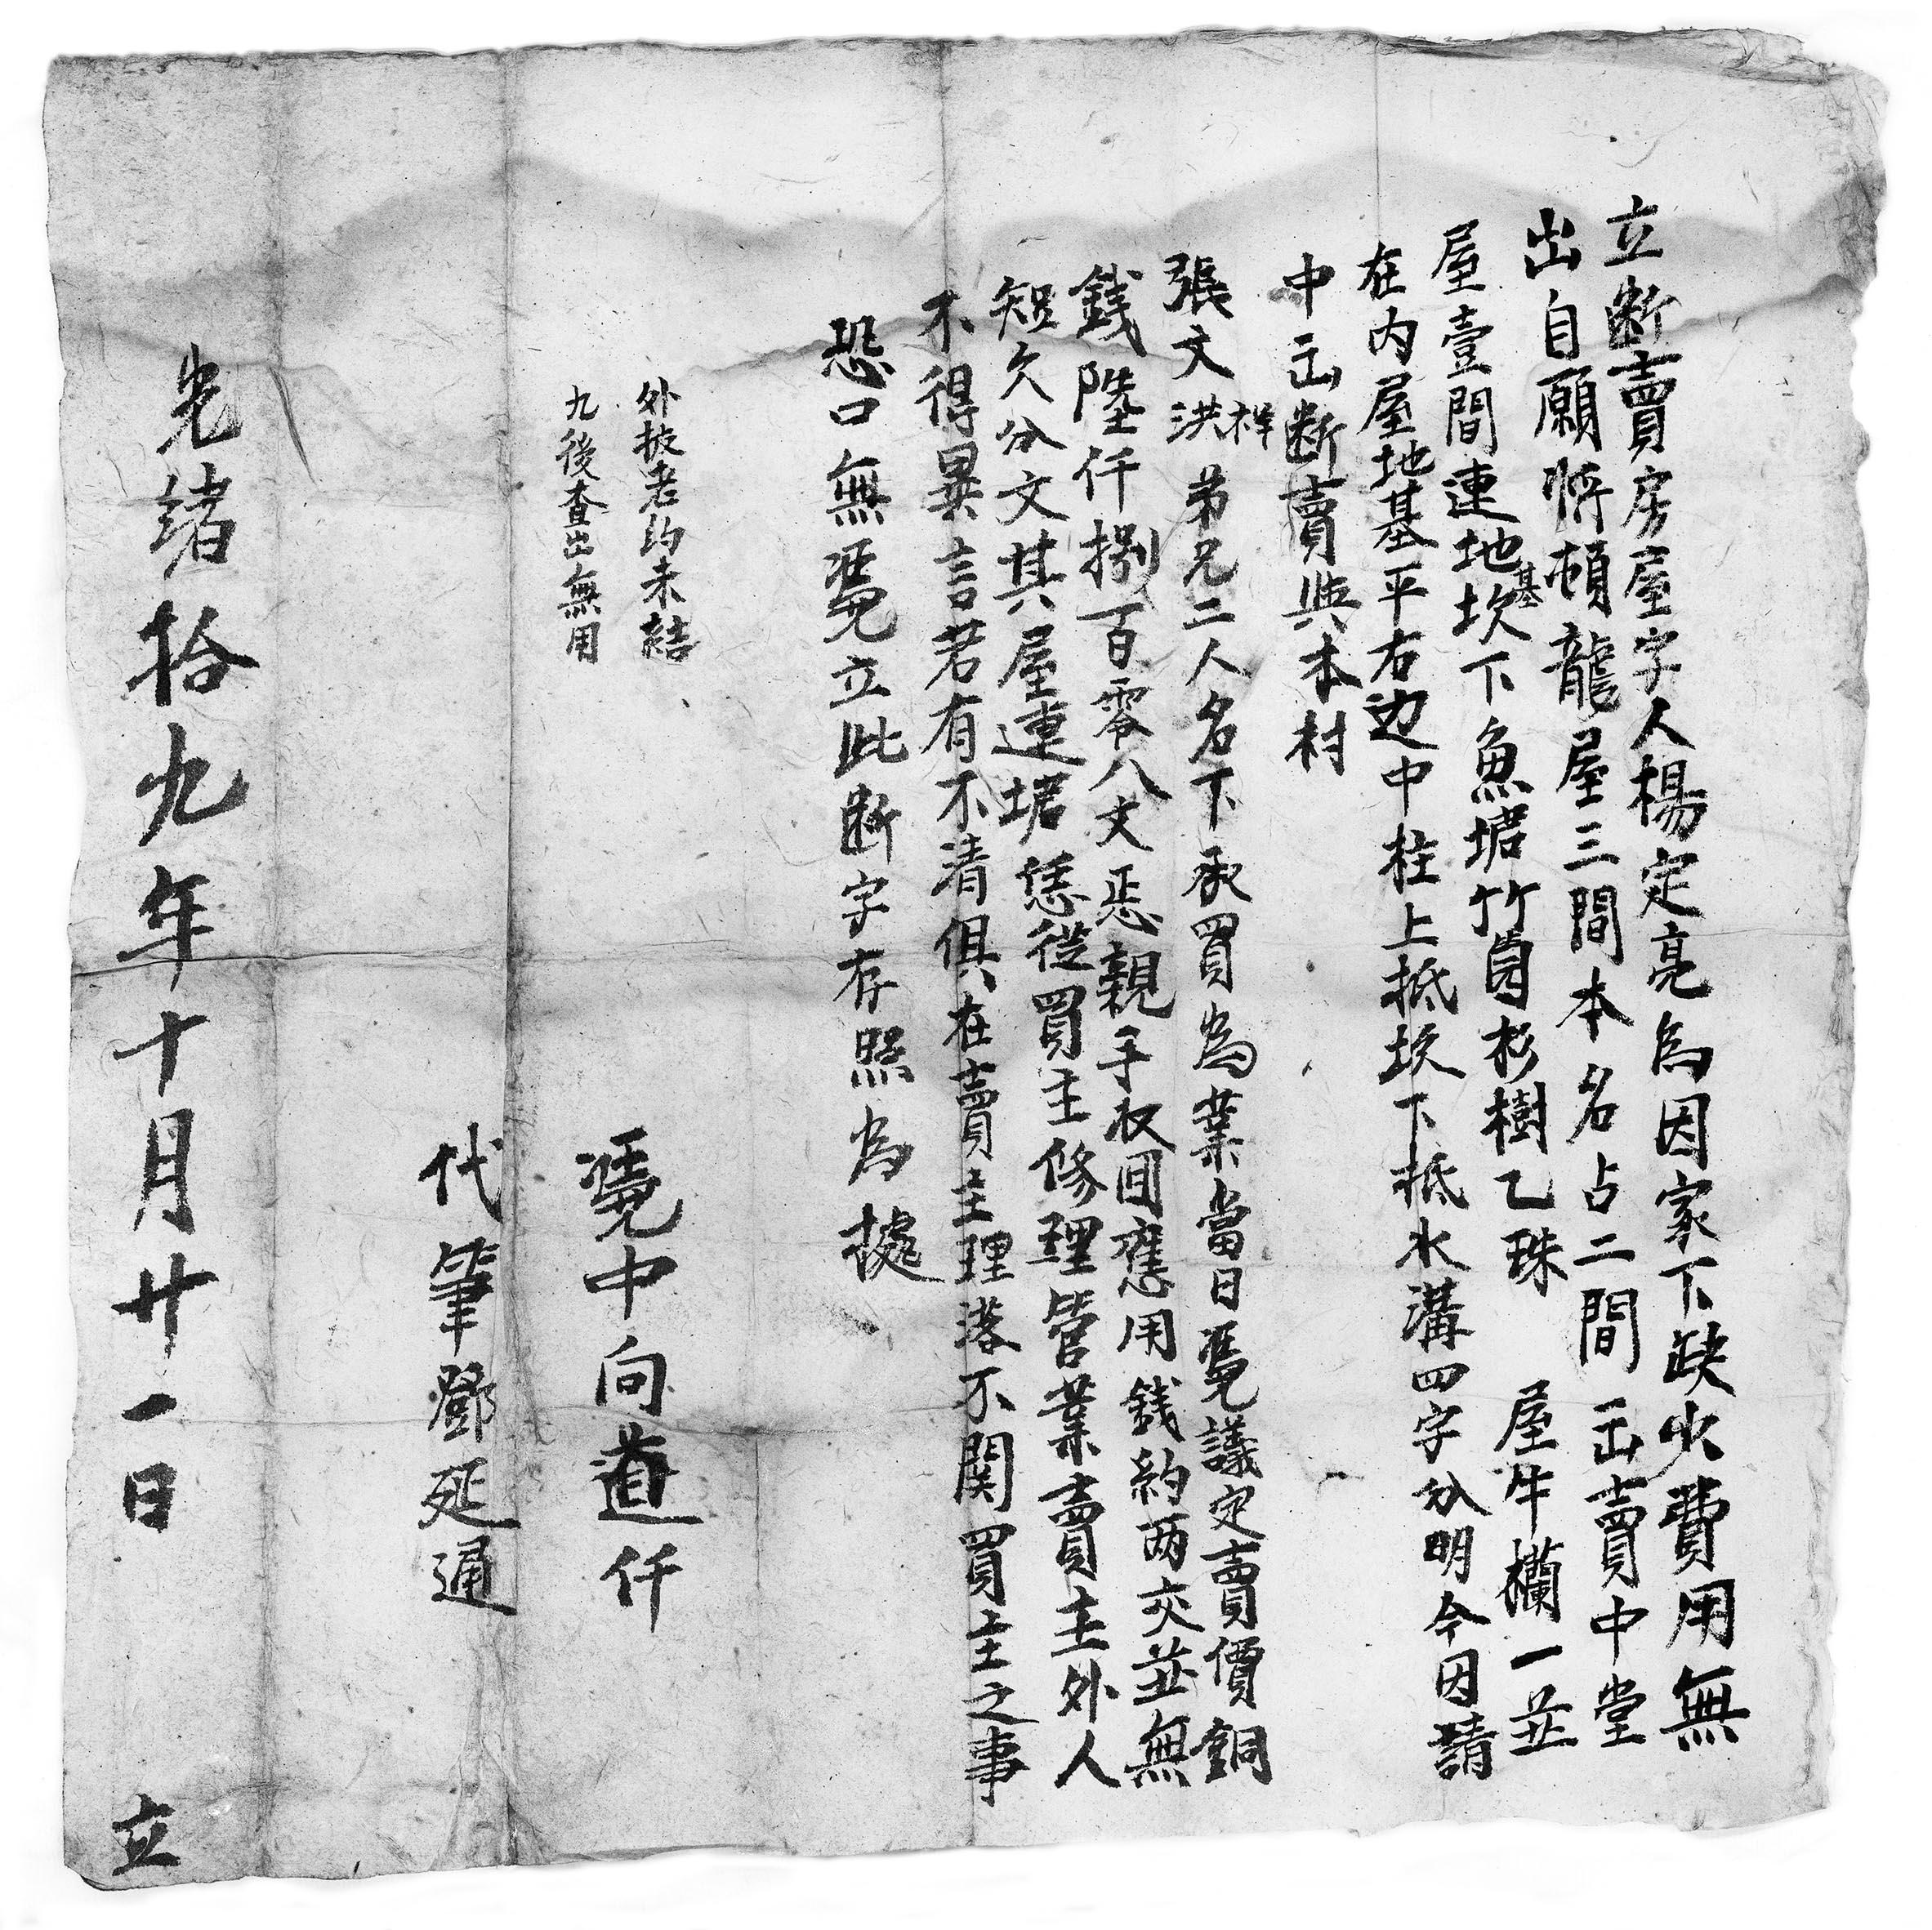 立断賣房屋字人楊定亮為因家下缺少費用無
出自願將頓龍屋三間本名占二間出賣中堂
屋壹間連地基坎下魚塘竹園杉樹乙珠 屋牛欄一並
在内屋地基平右边中柱上抵坎下抵水溝四字分明今因請
中出断賣與本村
張文洪祥弟兄二人名下承買為業當日凴議定賣價銅
錢陸仟捌百零八文恁親手收囬應用錢約两交並無
短欠分文其屋連塘恁從買主修理管業賣主外人
不得異言若有不清俱在賣主理落不関買主之事
恐口無凴立此断字存照為據
外披老約未結
九後查出無用
凴中向道仟
代筆鄧延通
光绪拾九年十月廿一日 立